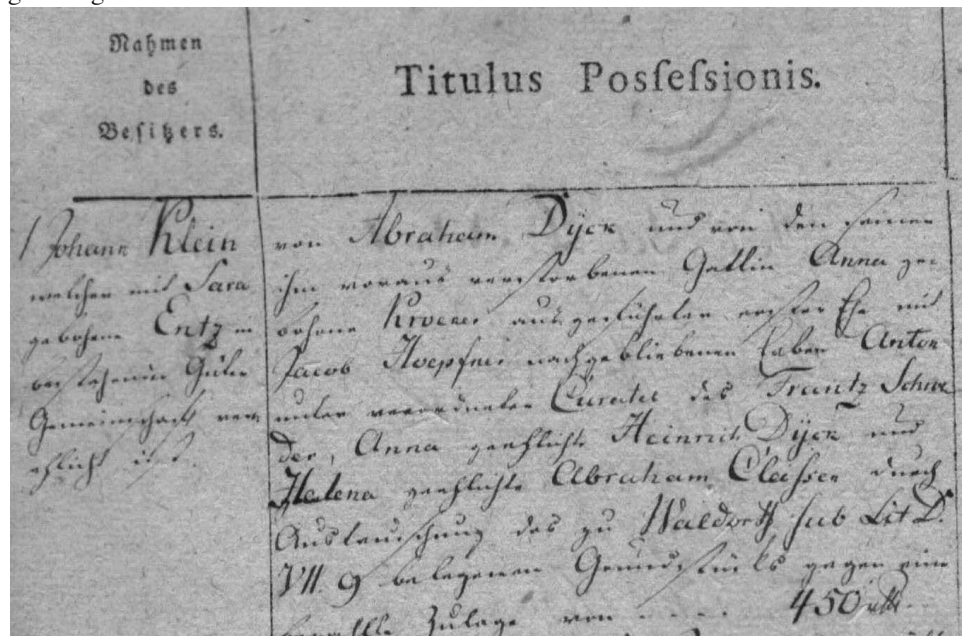 Nahmen
des
Besitzers.
Titulus Possessionis.
1 Johann Klein
welcher mit Sara
gebohrne Entz in
bestehender Güter
Gemeinschaft vere
ehlicht ist.
von Abraham Dyck und von den seiner
ihm voraus verstorbenen Gattin Anna ge-
bohrne Kroeker aus geführter erster Ehe mit
Jacob Hoepfner nachgebliebenen Erben Anton
unter verordneter Curatel des Frantz Schroe
der, Anna geehlichte Heinrich Dyck und
Helena geehlichte Abraham Claassen durch
Austauschung des zu Walldorf sub Lit D.
VII. 9 belegenen Grundstücks gegen eine
Zulage von ..... 450 rthl.